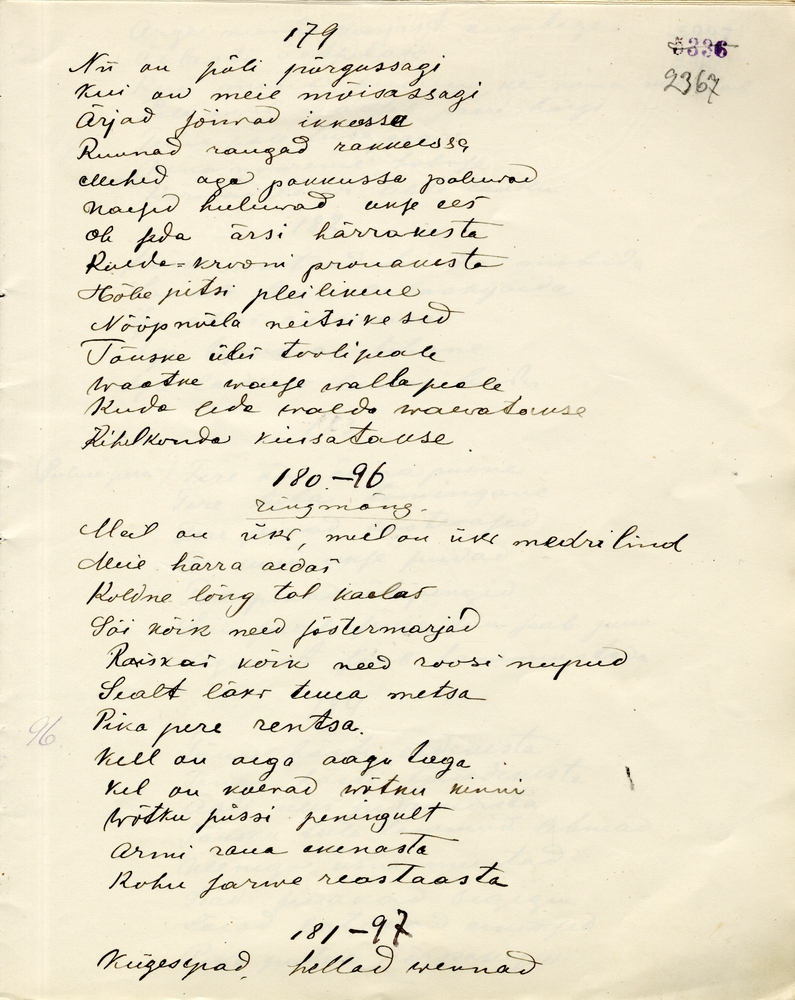 179
336
2367
Nii on põli põrgussagi
Kui on meie mõisassagi
Ärjad jõiwad ikkessa
Ruunad raugad rakkeessa
Mehed aga pakkussa paluwad
naesed huluwad ukse ees
oh seda ärsi härrakesta
Kulda=krooni prouakesta
Hõbe pitsi pleilikene
Nööpnõela neitsikesed
Tõuske üles toolipeale
waatke waese wallapeale
Kuda seda walda waewatakse
Kihelkonda kiusatakse
180-96
ringmäng.
Meil on üks, meil on üks medrilind
Meie härra aedas
Koldne lõng tal kaelas
Sõi kõik need sõstermarjad
Raiskas kõik need roosi nupud
Sealt läks tema metsa
96
Pika pere rentsa.
Kell on aega aagu tuga
kel on koerad wõtku kinni
wõtku püssi peningult
Armi raua ekenasta
Kohu sarwe reastaasta
181-97
Kiigesepad, hellad wennad